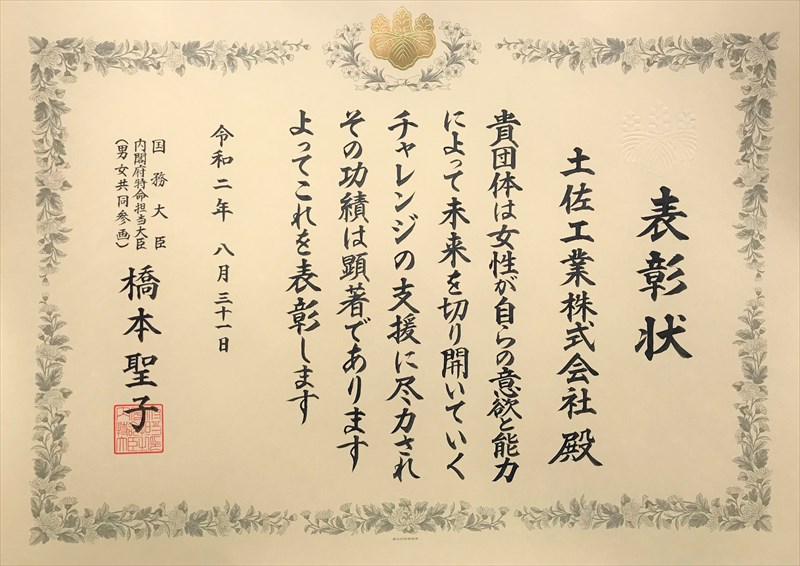 表彰状
土佐工業株式会社 殿
貴団体は女性が自らの意欲と能力
によって未来を切り開いていく
チャレンジの支援に尽力され
その功績は顕著であります
よってこれを表彰します
令和二年 八月 三十一日
国務大臣
内閣府特命担当大臣
(男女共同参画)
橋本聖子